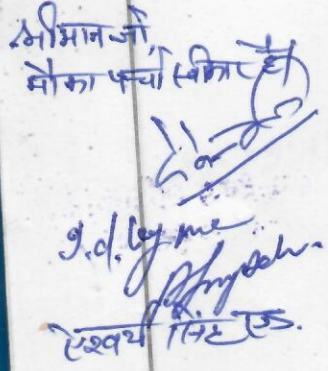 श्रीमान जी,
मौका पर्चा स्वीकार है।
I.d. by me
ऐश्वर्य सिंह एड.